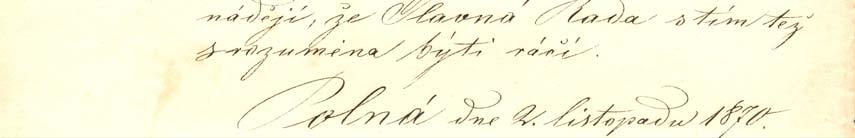 nádějí, že Slavná Rada s tím též
srozuměna býti ráčí.
Polná dne 2. listopadu 1870.